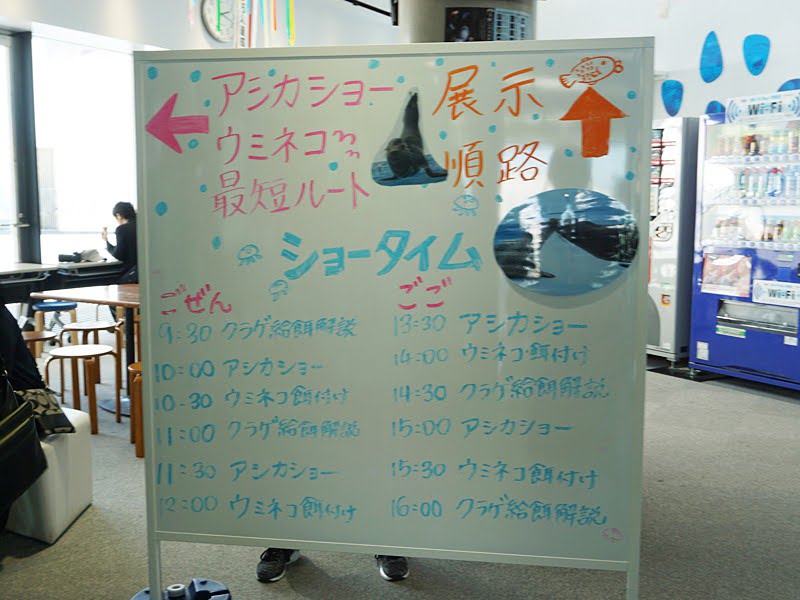 アシカショー
ウミネコ
最短ルート
展示
順路
ショータイム
ごぜん
9:30 クラゲ給餌解説
10:00 アシカショー
10:30 ウミネコ餌付け
11:00 クラゲ給餌解説
11:30 アシカショー
12:00 ウミネコ餌付け
ごご
13:30 アシカショー
14:00 ウミネコ餌付け
14:30 クラゲ給餌解説
15:00 アシカショー
15:30 ウミネコ餌付け
16:00 クラゲ給餌解説
Wi-Fi
Wi-Fi